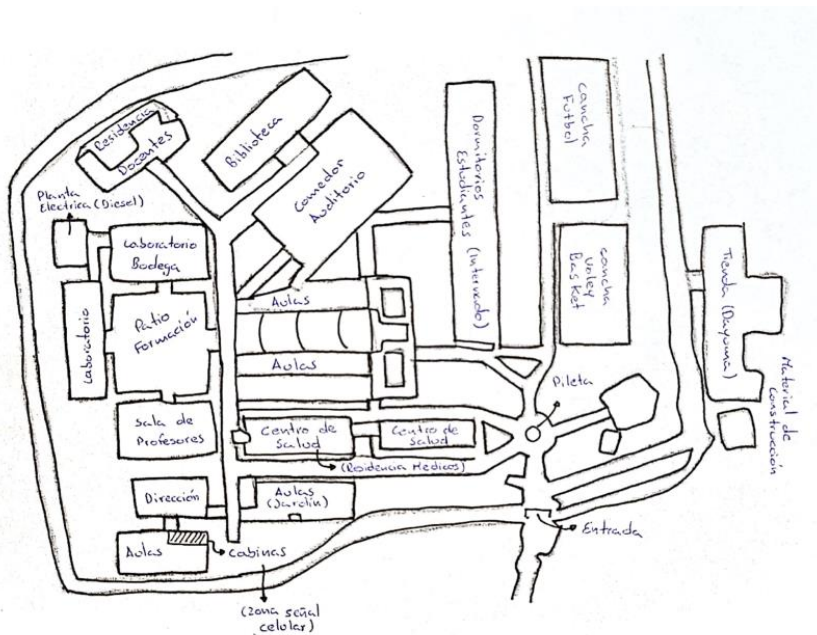 Residencia
Docentes
Biblioteca
Comedor
Auditorio
Dormitorios
Estudiantes (Internado)
cancha
Futbol
cancha
voley
Basket
Tienda (Dayuma)
Material de
Construcción
Planta
Electrica (Diesel)
Laboratorio
Bodega
Laboratorio
Patio
Formación
Aulas
Aulas
Sala de
Profesores
Centro de
Salud
Centro de
Salud
(Residencia Medicos)
Pileta
Dirección
Aulas
(Jardin)
Entrada
Aulas
Cabinas
(Zona señal
celular)